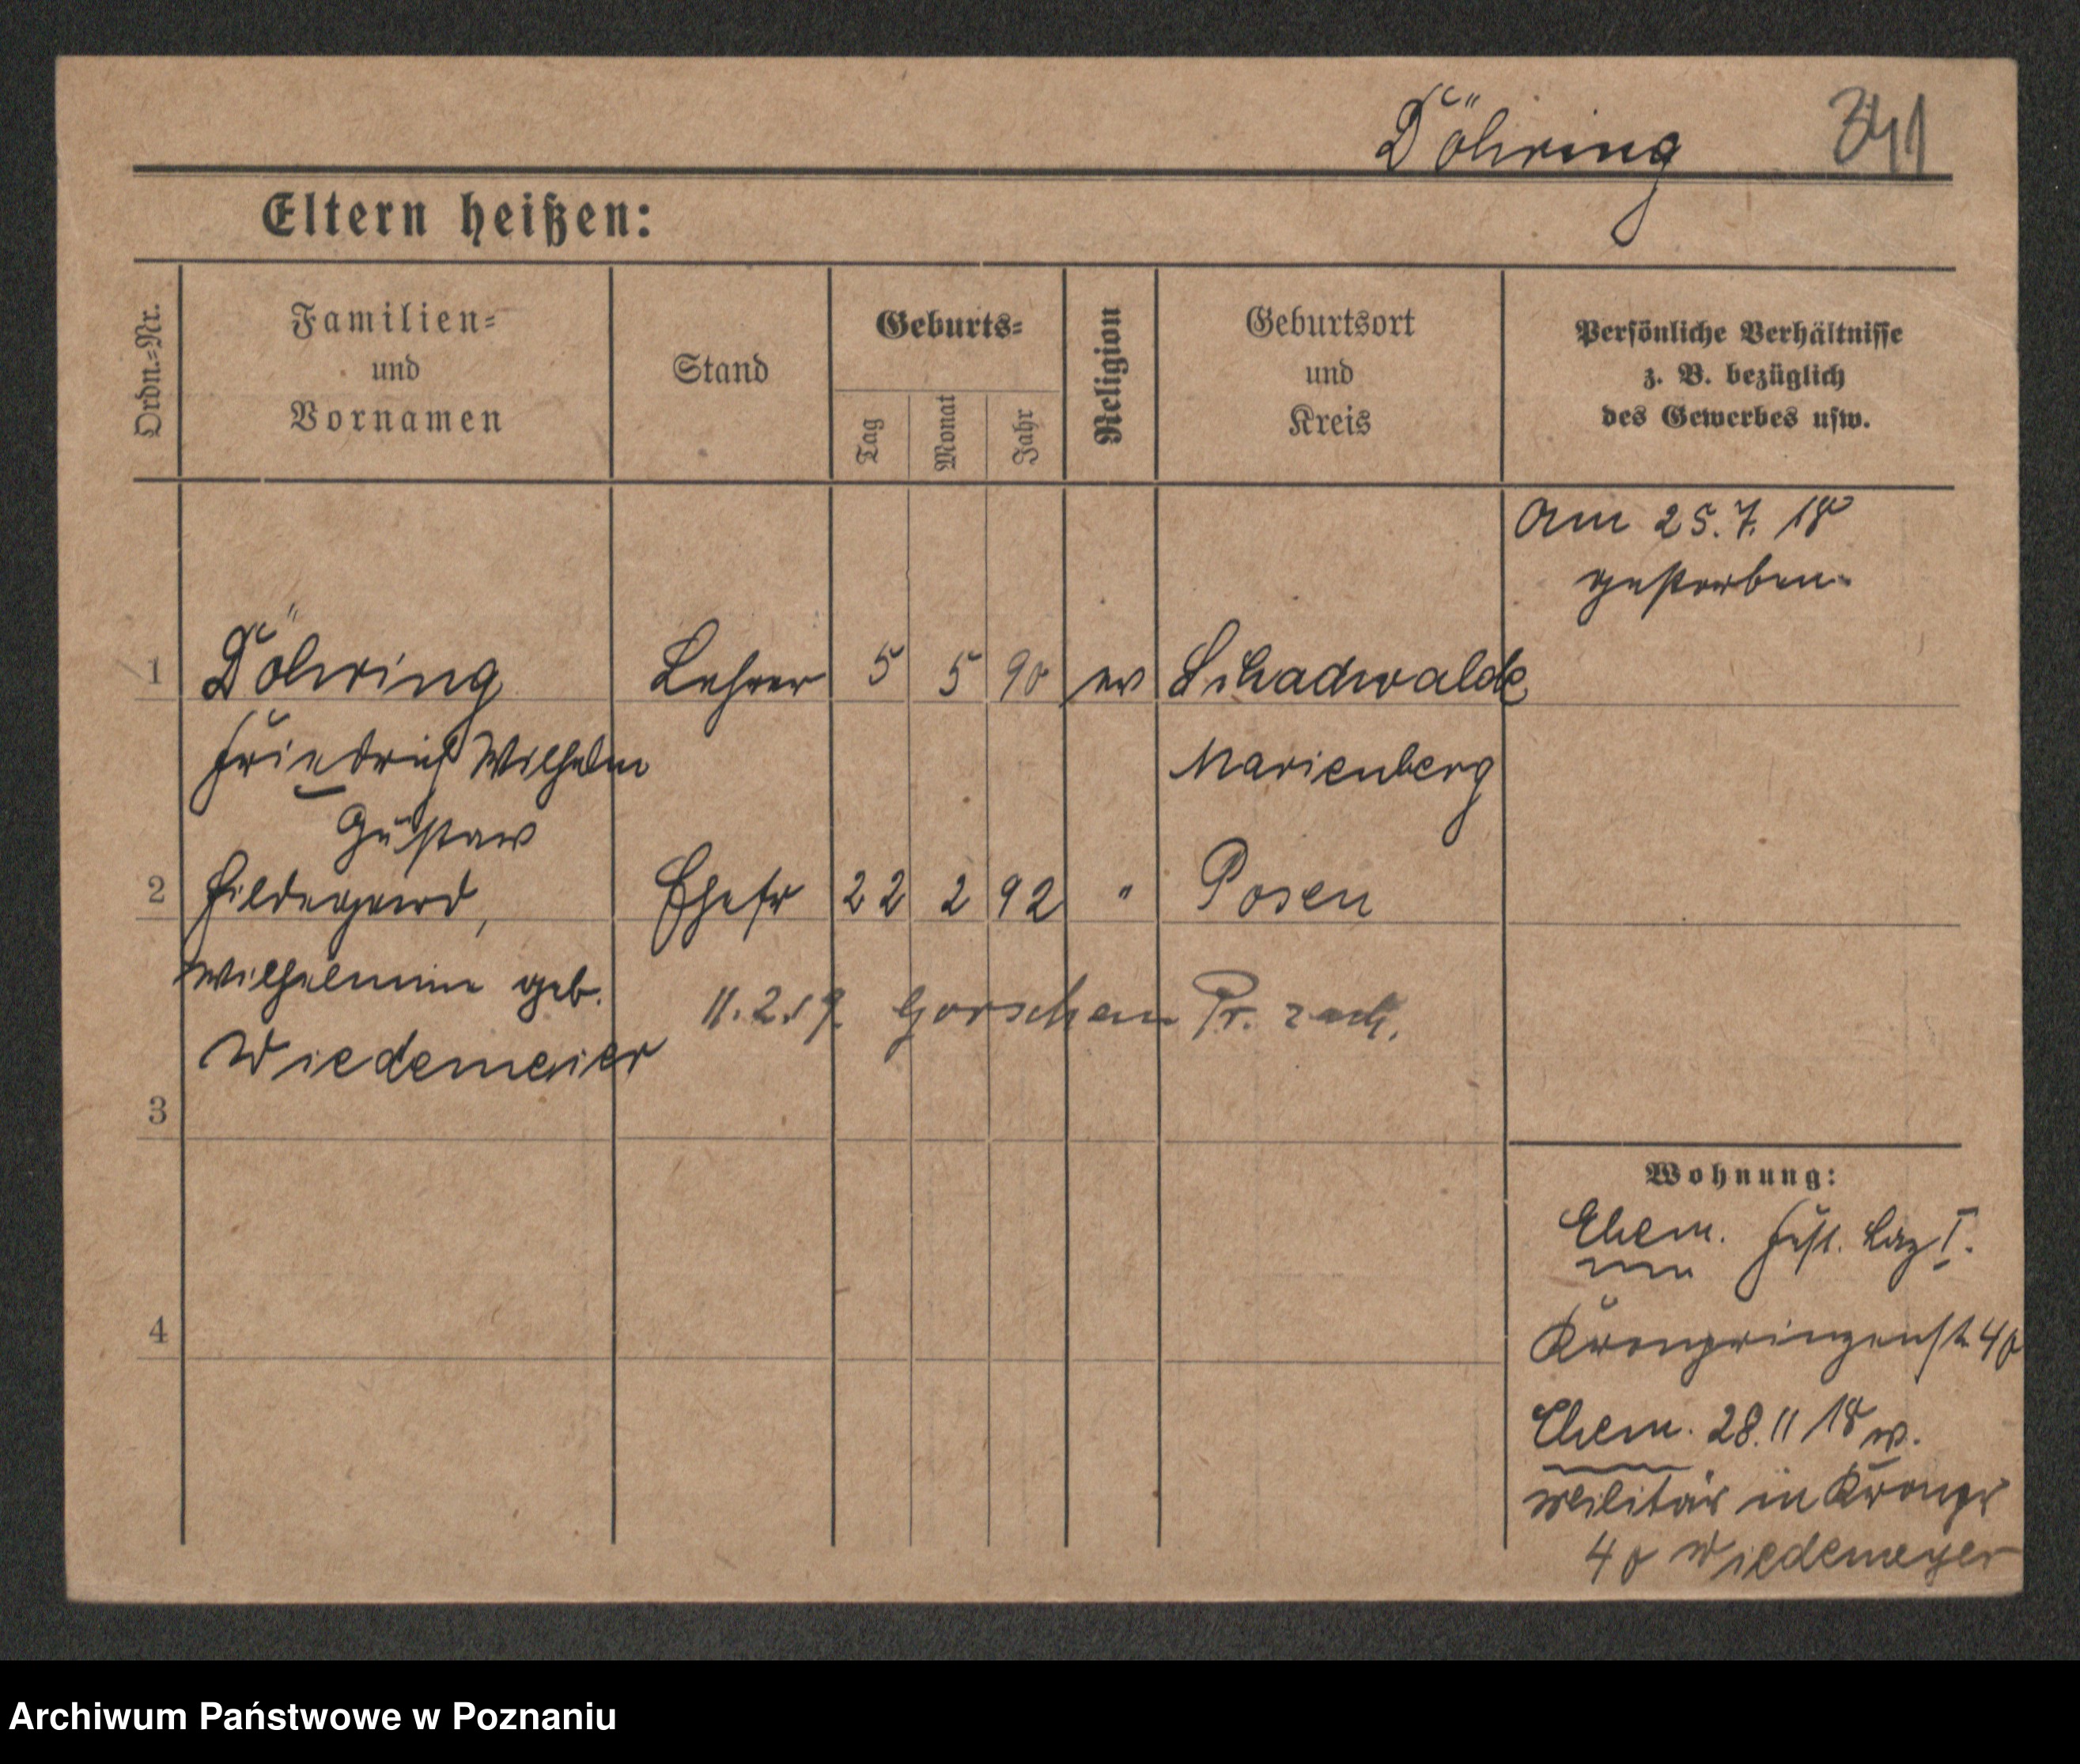 Döhring 341
Eltern heißen:
Ordn.=Nr.
Familien=
und
Vornamen
Stand
Geburts=
Tag
Monat
Jahr
Religion
Geburtsort
und
Kreis
Persönliche Verhältnisse
z. B. bezüglich
des Gewerbes usw.
Am 25.7.18
gestorben.
1 Döhring Lehrer 5 5 90 ev Schadwalde
Friedrich Wilhelm Marienberg
Gustav
2 Hildegard, Ehefr 22 2 92 " Posen
Wilhelmine geb.
11.2.19 Gorschen Pr.
Wiedemeier
3
Wohnung:
Ehem. Fest. Laz I.
4
Kronprinzenst. 40
Ehem. 28.11 18 v.
Militär in Kronpr
40 Wiedemeyer
Archiwum Państwowe w Poznaniu